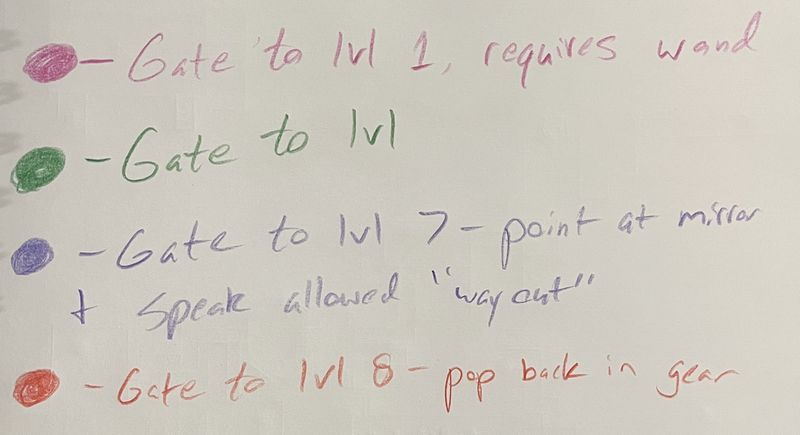 - Gate to lvl 1, requires wand
- Gate to lvl
- Gate to lvl 7 - point at mirror
+ speak allowed "way out"
- Gate to lvl 8 - pop back in gear